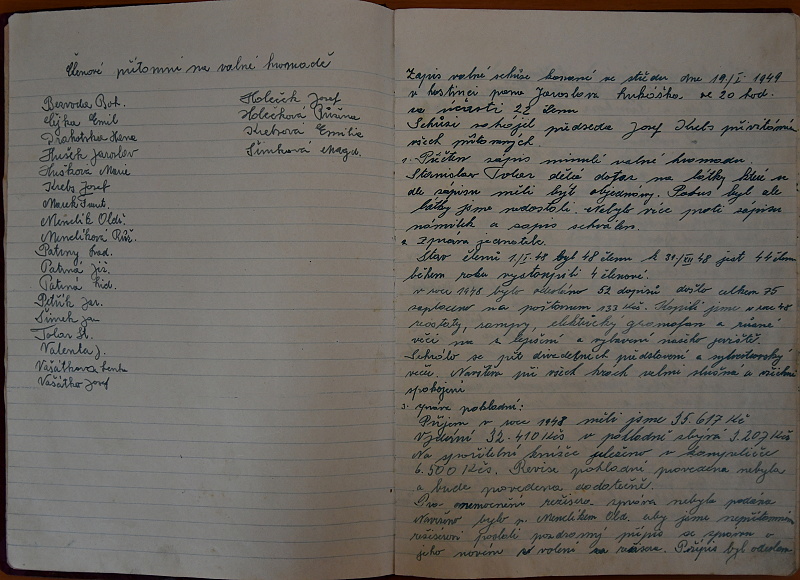 Členové přítomni na valné hromadě
Bezvoda Boh.
Cýka Emil
Drahotská Hana
Hušek Jaroslav
Hušková Marie
Krebs Josef
Marek Frant.
Menclík Oldř.
Menclíková Růž.
Patrný Lad.
Patrná Jiř.
Patrná Lid.
Petřík Jar.
Šimek Jan
Tolar St.
Valenta J.
Vašátková Lenka
Vašátko Josef
Holeček Josef
Holečková Růžena
Krebsová Emilie
Šimková Magd.
Zápis valné schůze konané ve středu dne 19/I. 1949
v hostinci pana Jaroslava Lukáška ve 20 hod.
za účasti 22 členů
Schůzi zahájil předseda Josef Krebs přivítáním
všech přítomných.
1. Přečten zápis minulé valné hromady.
Stanislav Tolar dělá dotaz na látky které se
dle zápisu měli být objednány. Podnes byl ale
látky jsme nedostali. Nebylo více proti zápisu
námitek a zápis schválen.
2. Zpráva jednatele.
Stav členů 1/I. 48 byl 48 členů k 31/XII 48 jest 44 členů
během roku vystoupili 4 členové.
v roce 1948 bylo odesláno 52 dopisů došlo celkem 75
zaplaceno na poštovném 133 Kčs. Koupili jsme v roce 48
reostaty, lampy, elektrický gramofon a různé
věci na zlepšení a vybavení našeho jeviště.
Sehrálo se pět divadelních představení a
večer. Návštěva při všech hrách velmi slušná a všichni
spokojeni
3. zpráva pokladní:
Příjem v roce 1948 měli jsme 35.617 Kč
Vydání 32.410 Kčs v pokladně zbývá 3.207 Kčs
Na spořitelní knížce uloženo v kampeličce
6.500 Kčs. Revise pokladní provedena nebyla
a bude provedena dodatečně.
Pro onemocnění režiséra zpráva nebyla podána
Navrženo bylo p. Menclíkem Old. aby jsme nepřítomném
režisérovi poslali pozdravný přípis se zprávou o
jeho novém zvolení za režiséra. Přípis byl odeslán